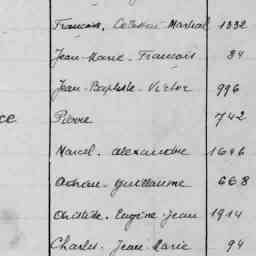 François. Celestin Martial 1332
Jean-Marie-François 84
Jean-Baptiste-Victor 996
ce Pierre 742
Marcel-Alexandre 1646
Adrian-Guillaume 668
Eugène-Jean 1914
Charles-Jean-Marie 94